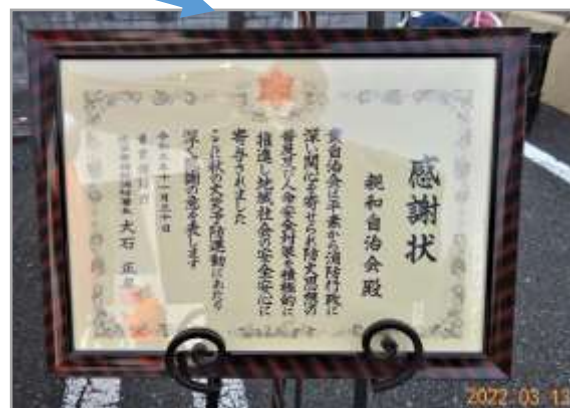 感謝状
親和自治会殿
貴自治会は平素から消防行政に
深い関心を寄せられ防火思想の
普及及び人命安全対策を積極的に
推進し地域社会の安全安心に
寄与されました
ここに秋の火災予防運動にあたり
深く感謝の意を表します
令和三年十一月三十日
東京消防庁
消防署長 大石 正
2022.03.13